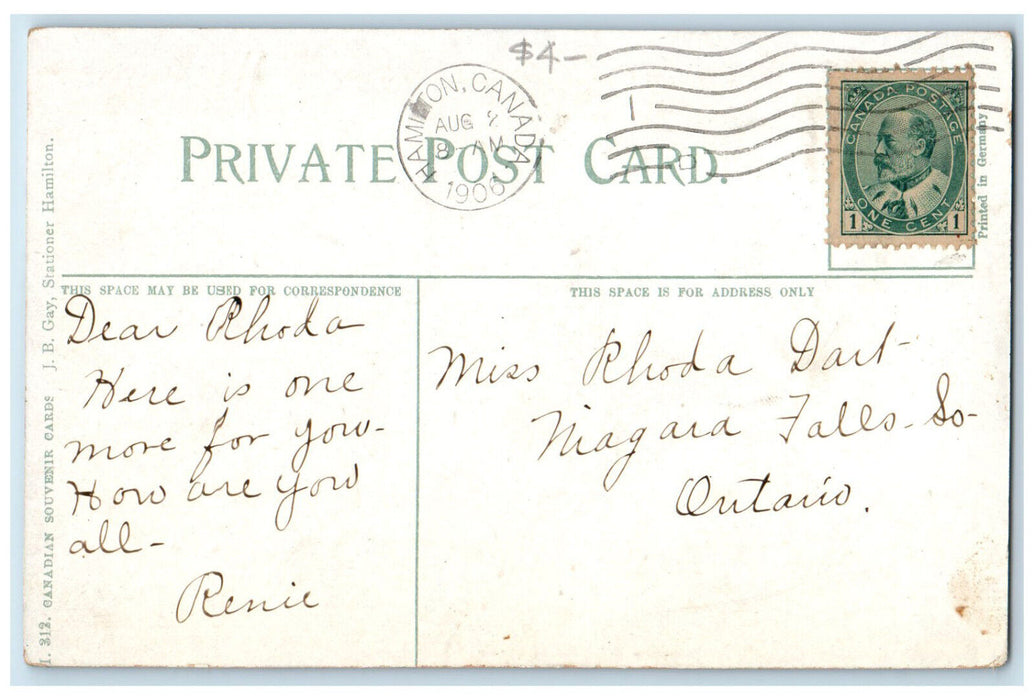 $4-
HAMILTON, CANADA
AUG
8 - AM
1906
PRIVATE POST CARD.
CANADA POSTAGE
1 ONE CENT 1
Printed in Germany
THIS SPACE MAY BE USED FOR CORRESPONDENCE
THIS SPACE IS FOR ADDRESS ONLY
Dear Rhoda
Here is one
more for you-
How are you
all-
Renie
Miss Rhoda Dart
Niagara Falls- So-
Ontario.
312. CANADIAN SOUVENIR CARDS J. B. Gay, Stationer Hamilton.